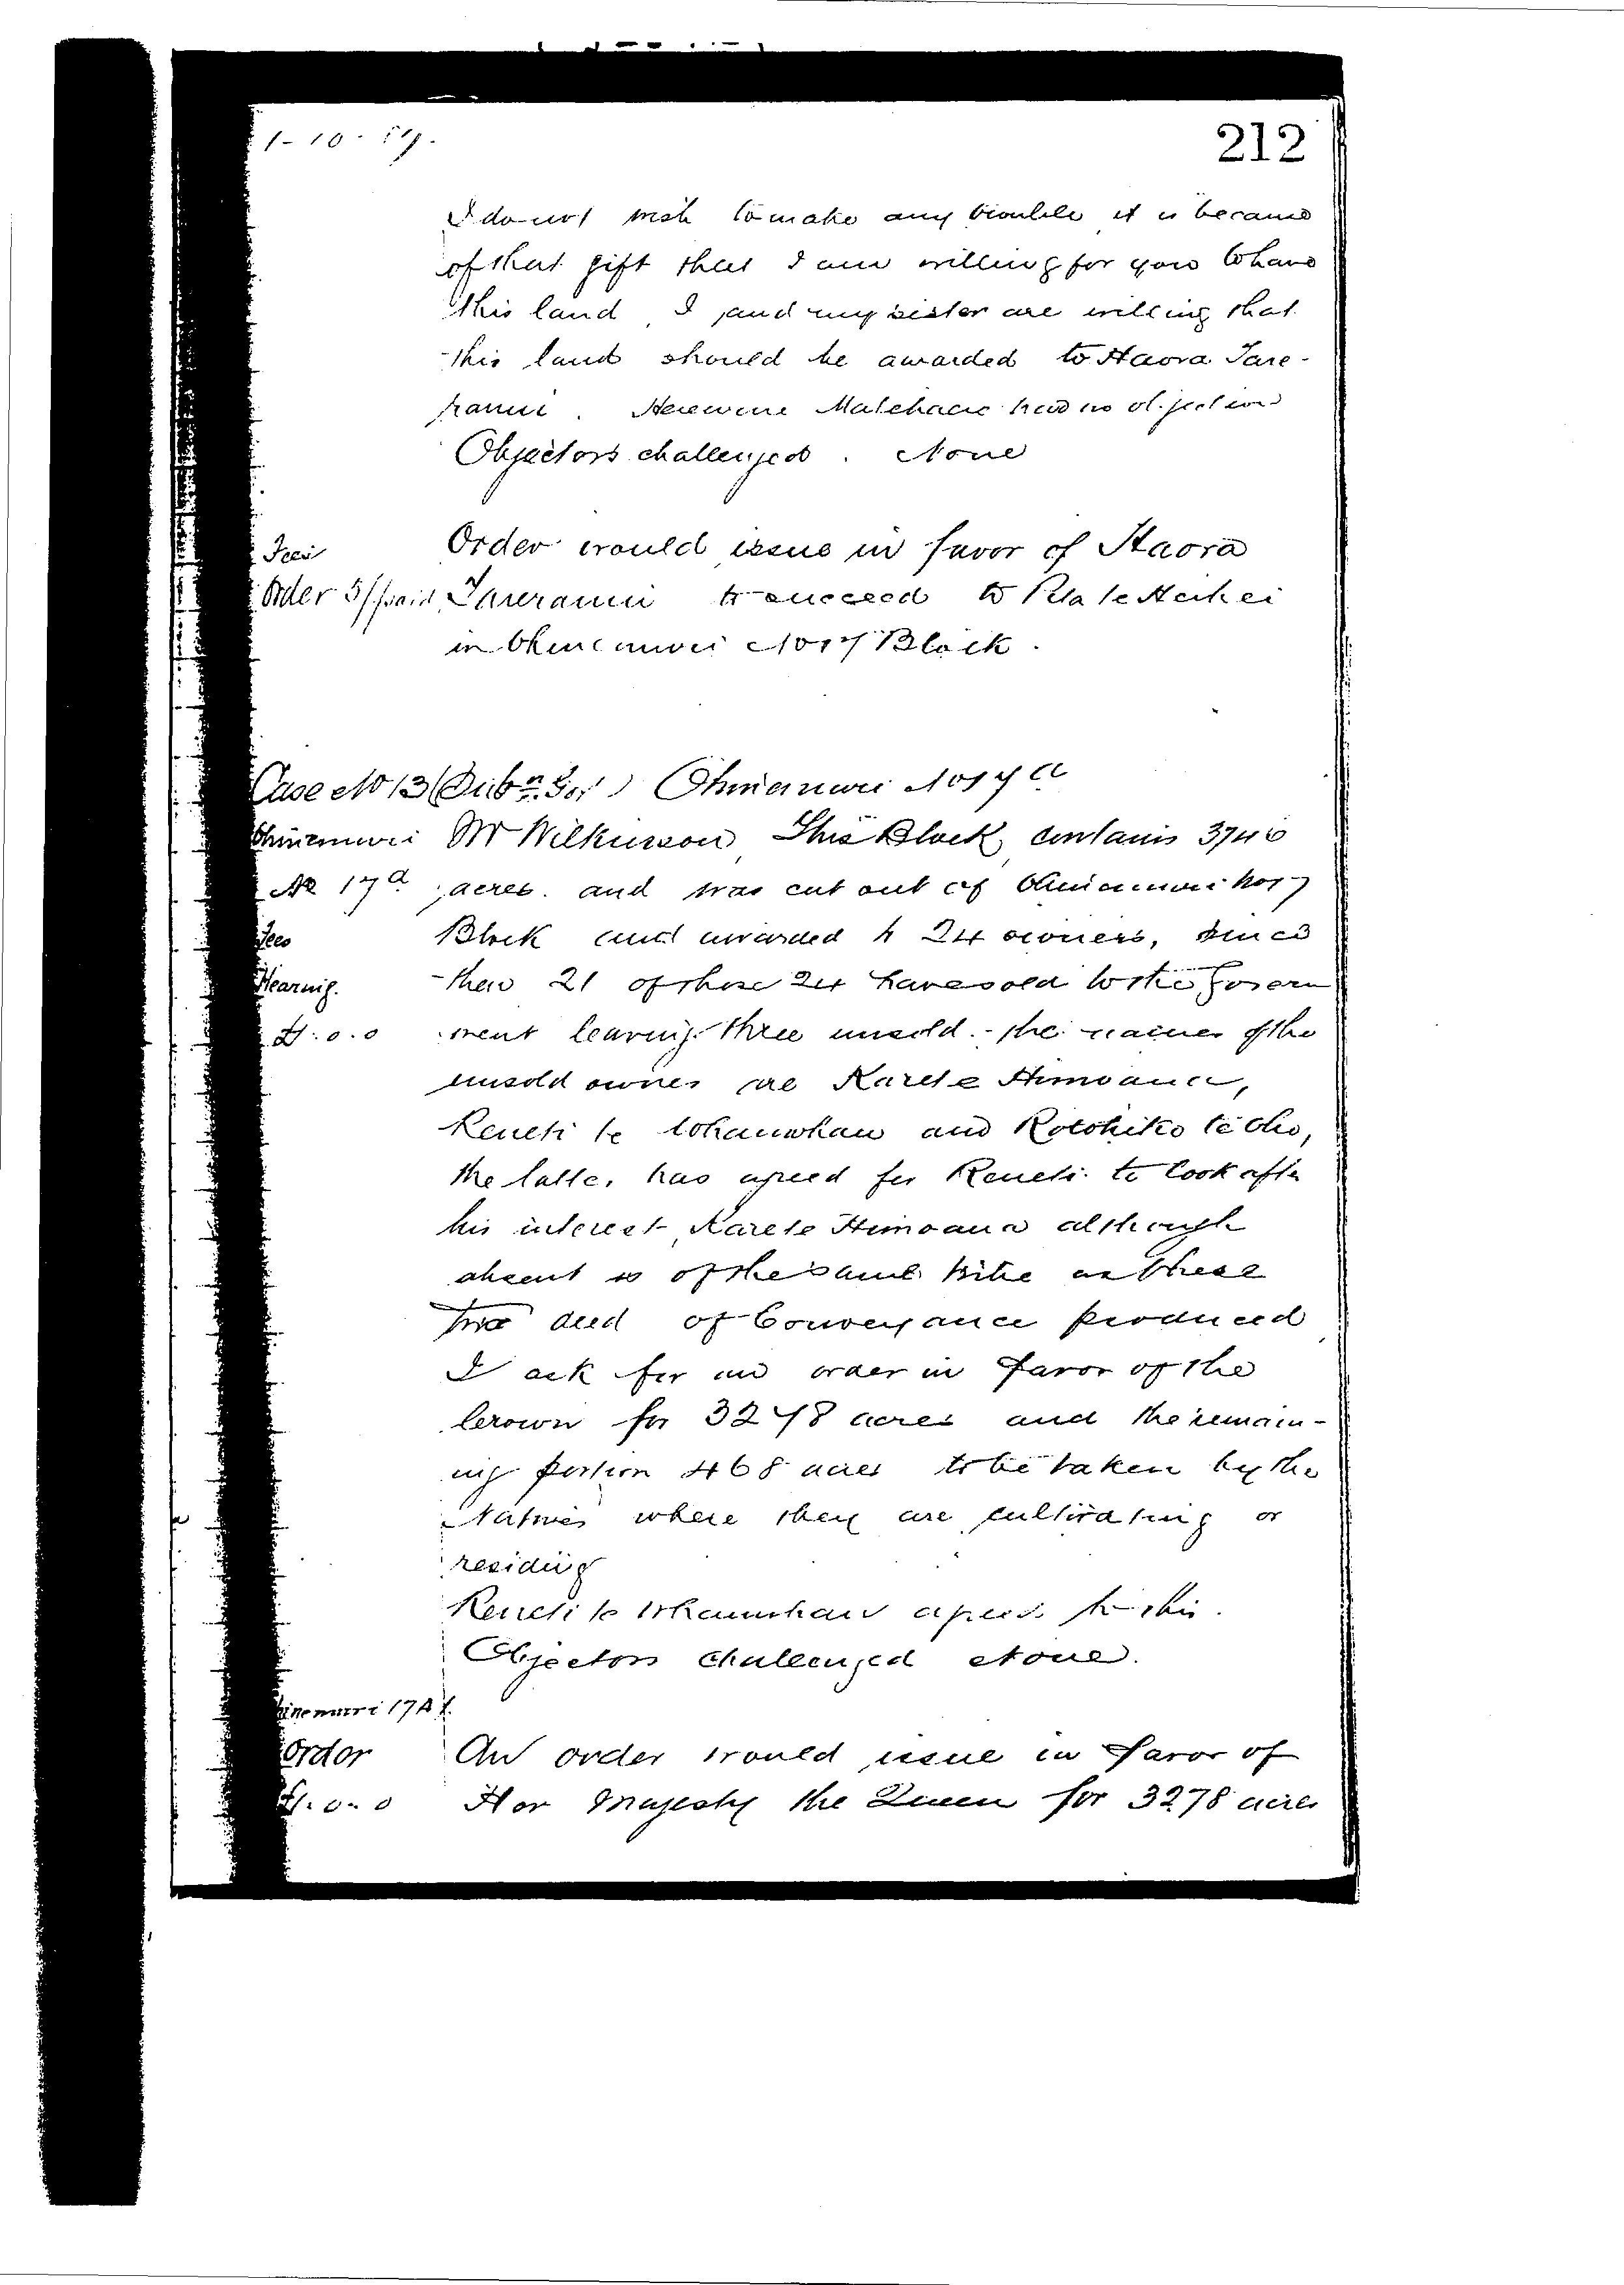 1-10-89.
212
I do not wish to make any trouble it is because
of that gift that I am willing for you to have
this land, I and my sister are willing that
this land should be awarded to Haora Tare-
ranui. Herewini Matehaere had no objection
Objectors challenged. None
Fees
Order 5/ paid
Order would issue in favor of Haora
Tareranui to succeed to
in Ohinemuri No 17 Block.
Case No 13 (Subn. ) Ohinemuri No 17 a
Ohinemuri
No 17a
Fees
Hearing.
£1.0.0
Mr Wilkinson This Block contains 3746
acres. and was cut out of Ohinemuri No 17
Block and awarded to 24 owners, since
then 21 of those 24 have sold to the Govern
ment leaving three unsold. - the names of the
unsold owners are Karete Himoana,
Reneti te Whauwhau and Rotohiko te Oho,
the latter has agreed for Reneti to look after
his interest, Karete Himoana although
absent is of the same tribe as these
two deed of Conveyance produced
I ask for an order in favor of the
Crown for 3278 acres and the remain-
ing portion 468 acres to be taken by the
Natives where they are cultivating or
residing
Reneti te Whauwhau agreed to this.
Objectors challenged None.
Ohinemuri 17A1.
Order
£1.0.0
An order would issue in favor of
Her Majesty the Queen for 3278 acres